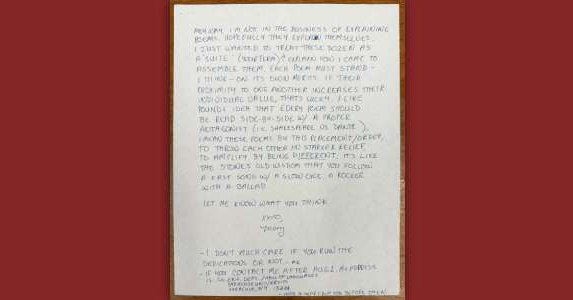 ANYWAY, I'M NOT IN THE BUSINESS OF EXPLAINING
POEMS. HOPEFULLY THEY EXPLAIN THEMSELVES.
I JUST WANTED TO TREAT THESE DOZEN AS
A "SUITE" EXPLAIN HOW I CAME TO
ASSEMBLE THEM. EACH POEM MUST STAND -
I THINK - ON ITS OWN MERITS. IF THEIR
PROXIMITY TO ONE ANOTHER INCREASES THEIR
INDIVIDUAL VALUE, THAT'S LUCKY. I LIKE
POUND'S IDEA THAT EVERY POEM SHOULD
BE READ SIDE-BY-SIDE W/ A PROPER
ANTAGONIST (I.E. SHAKESPEARE VS. DANTE),
I MEAN THESE POEMS BY THIS PLACEMENT/ORDER,
TO THROW EACH OTHER IN STARKER RELIEF,
TO AMPLIFY BY BEING DIFFERENT. IT'S LIKE
THE STONES' OLD WISDOM THAT YOU FOLLOW
A FAST SONG W/ A SLOW ONE. A ROCKER
WITH A BALLAD.
LET ME KNOW WHAT YOU THINK.
- I DON'T MUCH CARE IF YOU RUN THE
DEDICATIONS OR NOT.
- IF YOU CONTACT ME AFTER AUG 1, MY ADDRESS
IS
SYRACUSE UNIVERSITY
SYRACUSE, NY